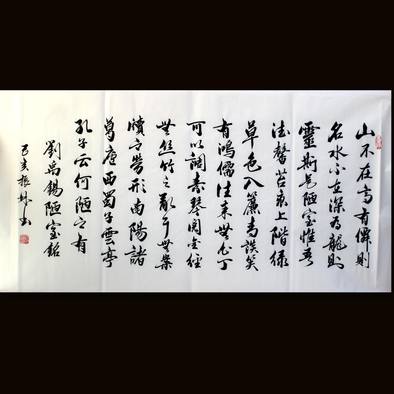 山不在高有僊則
名水不在深有龍則
靈斯是陋室惟吾
德馨苔痕上階綠
草色入簾青談笑
有鴻儒往来無白丁
可以調素琴閱金經
無絲竹之亂耳無案
牘之勞形南陽諸
葛廬西蜀子雲亭
孔子云何陋之有
劉禹錫陋室銘
己亥振書